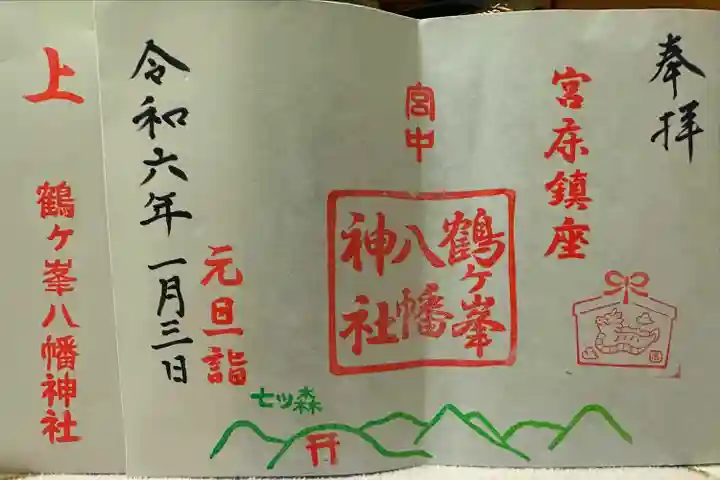 奉拝
宮床鎮座
宮中
鶴ヶ峯
八幡
神社
元旦詣
令和六年一月三日
七ッ森
上
鶴ヶ峯八幡神社